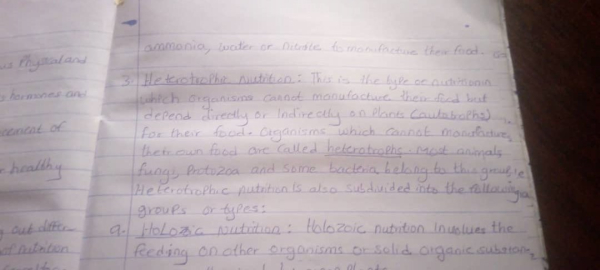 ammonia, water or nitrite to manufacture their food.
us Physical and
3. Heterotrophic nutrition: This is the type of nutrition in
hormones and
which organisms cannot manufacture their food but
depend directly or indirectly on plants (autotrophs)
cement of
for their food. Organisms which cannot manufacture
their own food are called heterotrophs. Most animals,
r healthy
fungi, Protozoa and some bacteria belong to this group.
Heterotrophic nutrition is also subdivided into the following
groups or types:
g out differ-
a. Holozoic Nutrition: Holozoic nutrition involves the
of nutrition
feeding on other organisms or solid organic